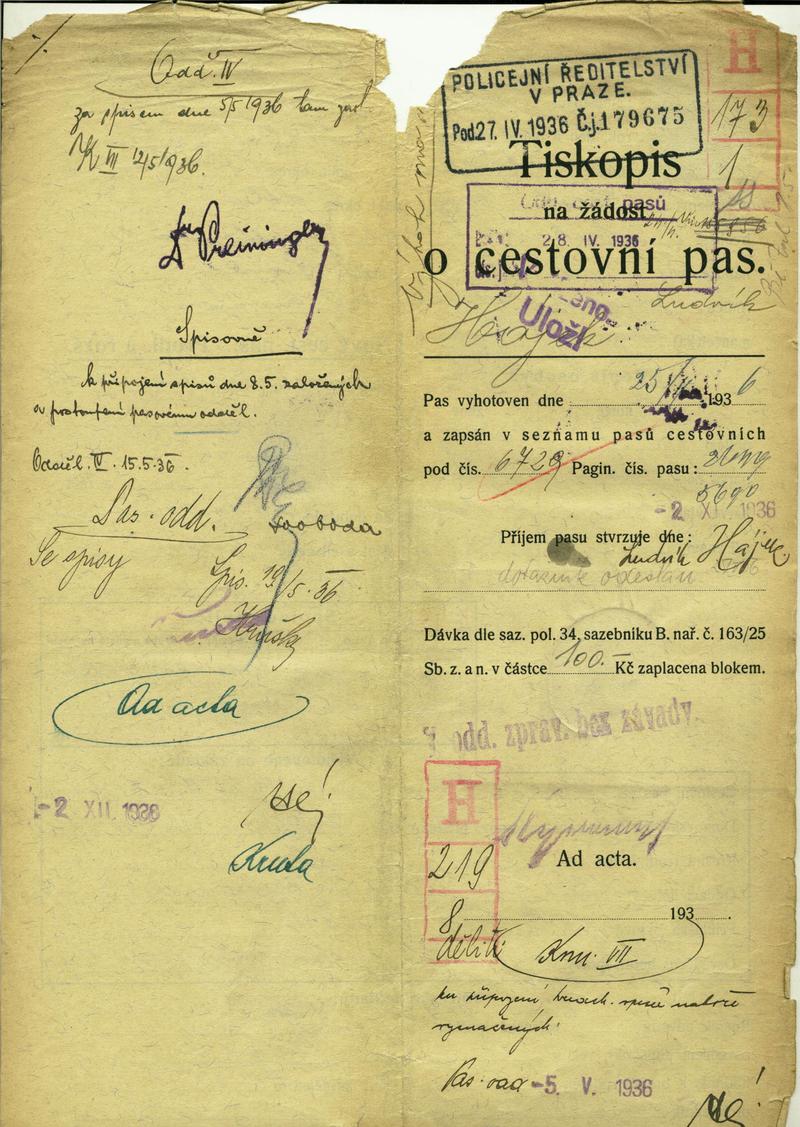 Odd. IV
za spisem dne 5/5 1936 tam zasl
K VII 12/5 1936.
Dr Preininger
Spisovně
k připojení spisů dne 8.5. založených
a postoupení pasovému odděl.
Odděl. IV. 15.5.36.
Pas. odd.
Svoboda
Se spisy
Spis. 19/5. 36
Ad acta
-2 XII. 1936
POLICEJNÍ ŘEDITELSTVÍ
V PRAZE.
Pod. 27. IV. 1936 Čj. 179675
H
173
1
Tiskopis
na žádost
pasů
28. IV. 1936
o cestovní pas.
Uloži
Hájek Ludvík
Pas vyhotoven dne 25 1936
a zapsán v seznamu pasů cestovních
pod čís. 6729 Pagin. čís. pasu:
5690
-2 XI. 1936
Příjem pasu stvrzuje dne:
Ludvík Hájek
dotazník odeslán
Dávka dle saz. pol. 34, sazebníku B. nař. č. 163/25
Sb. z. a n. v částce 100.– Kč zaplacena blokem.
V odd. zprav. bez závady.
H
219
8
Ad acta.
193 .
Kom. VII
Pas. odd -5. V. 1936